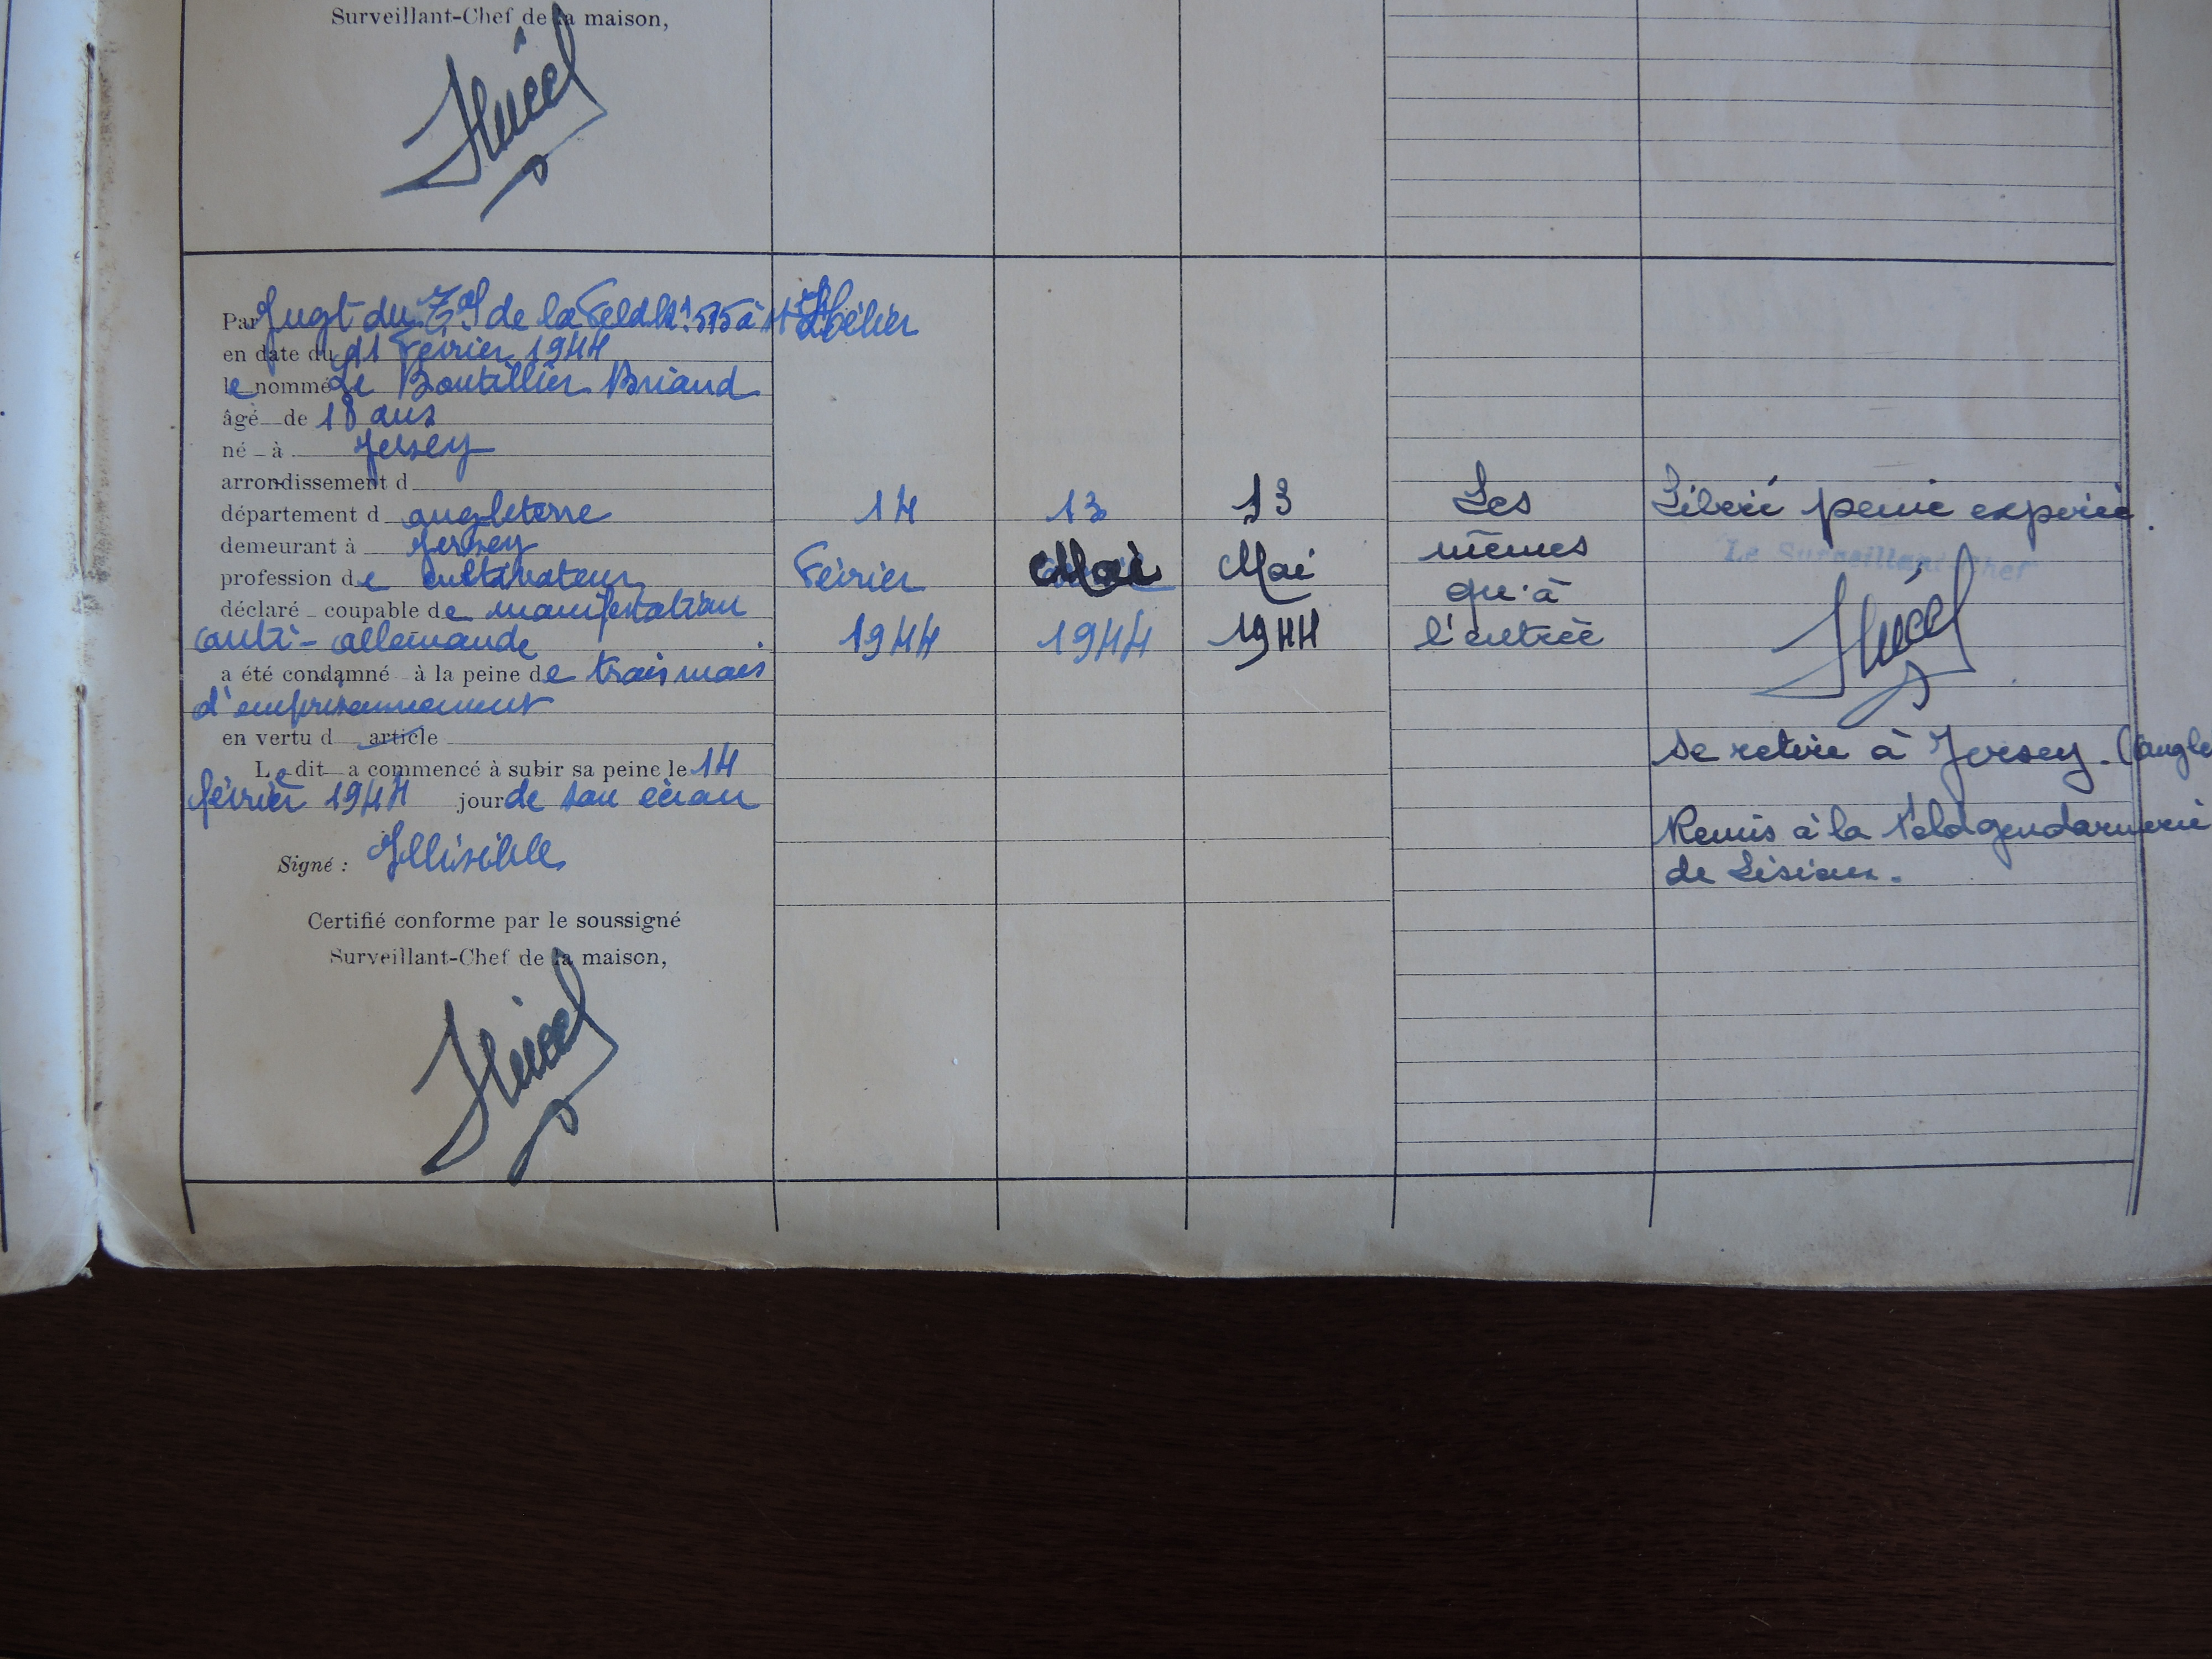 Surveillant-Chef de la maison,
Par Jugt du T de la Feldk 515 à St Hélier
en date du 11 Février 1944
le nommé Le Boutillier Briand
âgé de 18 ans
né à Jersey
arrondissement d
département d angleterre
demeurant à Jersey
profession de cultivateur
déclaré coupable de manifestation
anti-allemande
a été condamné à la peine de trois mois
d'emprisonnement
en vertu d article
Le dit a commencé à subir sa peine le 14
février 1944 jour de son écrou
Signé : Illisible
Certifié conforme par le soussigné
Surveillant-Chef de la maison,
14
Février
1944
13
Mai
1944
13
Mai
1944
Les
mêmes
qu'à
l'entrée
Libéré peine expirée.
Le Surveillant-Chef
se retire à Jersey. (angle
Remis à la Feldgendarmerie
de Lisieux.